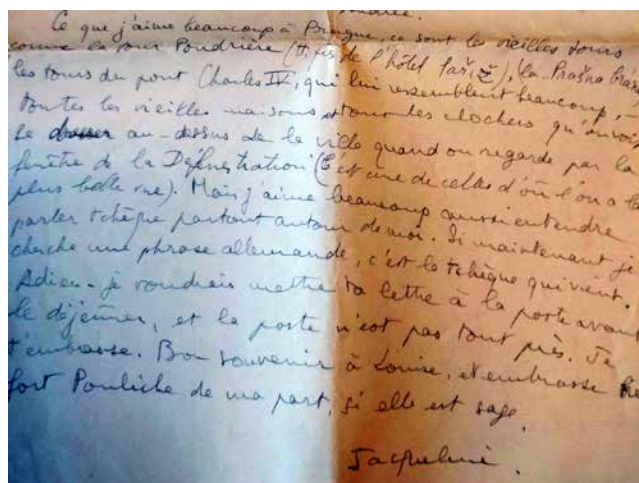 Ce que j'aime beaucoup à Prague, ce sont les vieilles tours
comme la Tour Poudrière (tt près de l'hôtel Pařiž), la Prašna brána
les tours du pont Charles IV, qui lui ressemblent beaucoup,
toutes les vieilles maisons et tous les clochers qu'on voit
se dresser au-dessus de la ville quand on regarde par la
fenêtre de la Défenestration (C'est une de celles d'où l'on a la
plus belle vue). Mais j'aime beaucoup aussi entendre
parler tchèque partout autour de moi. Si maintenant je
cherche une phrase allemande, c'est le tchèque qui vient.
Adieu - je voudrais mettre ta lettre à la poste avant
le déjeuner, et la poste n'est pas tout près. Je
t'embrasse. Bon souvenir à Louise, et embrasse
fort Pouliche de ma part, si elle est sage.
Jacqueline.